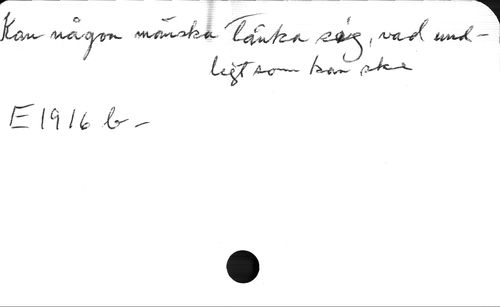 Kan någon mänska tänka sig, vad und-
ligt som kan ske
E 1916 b -